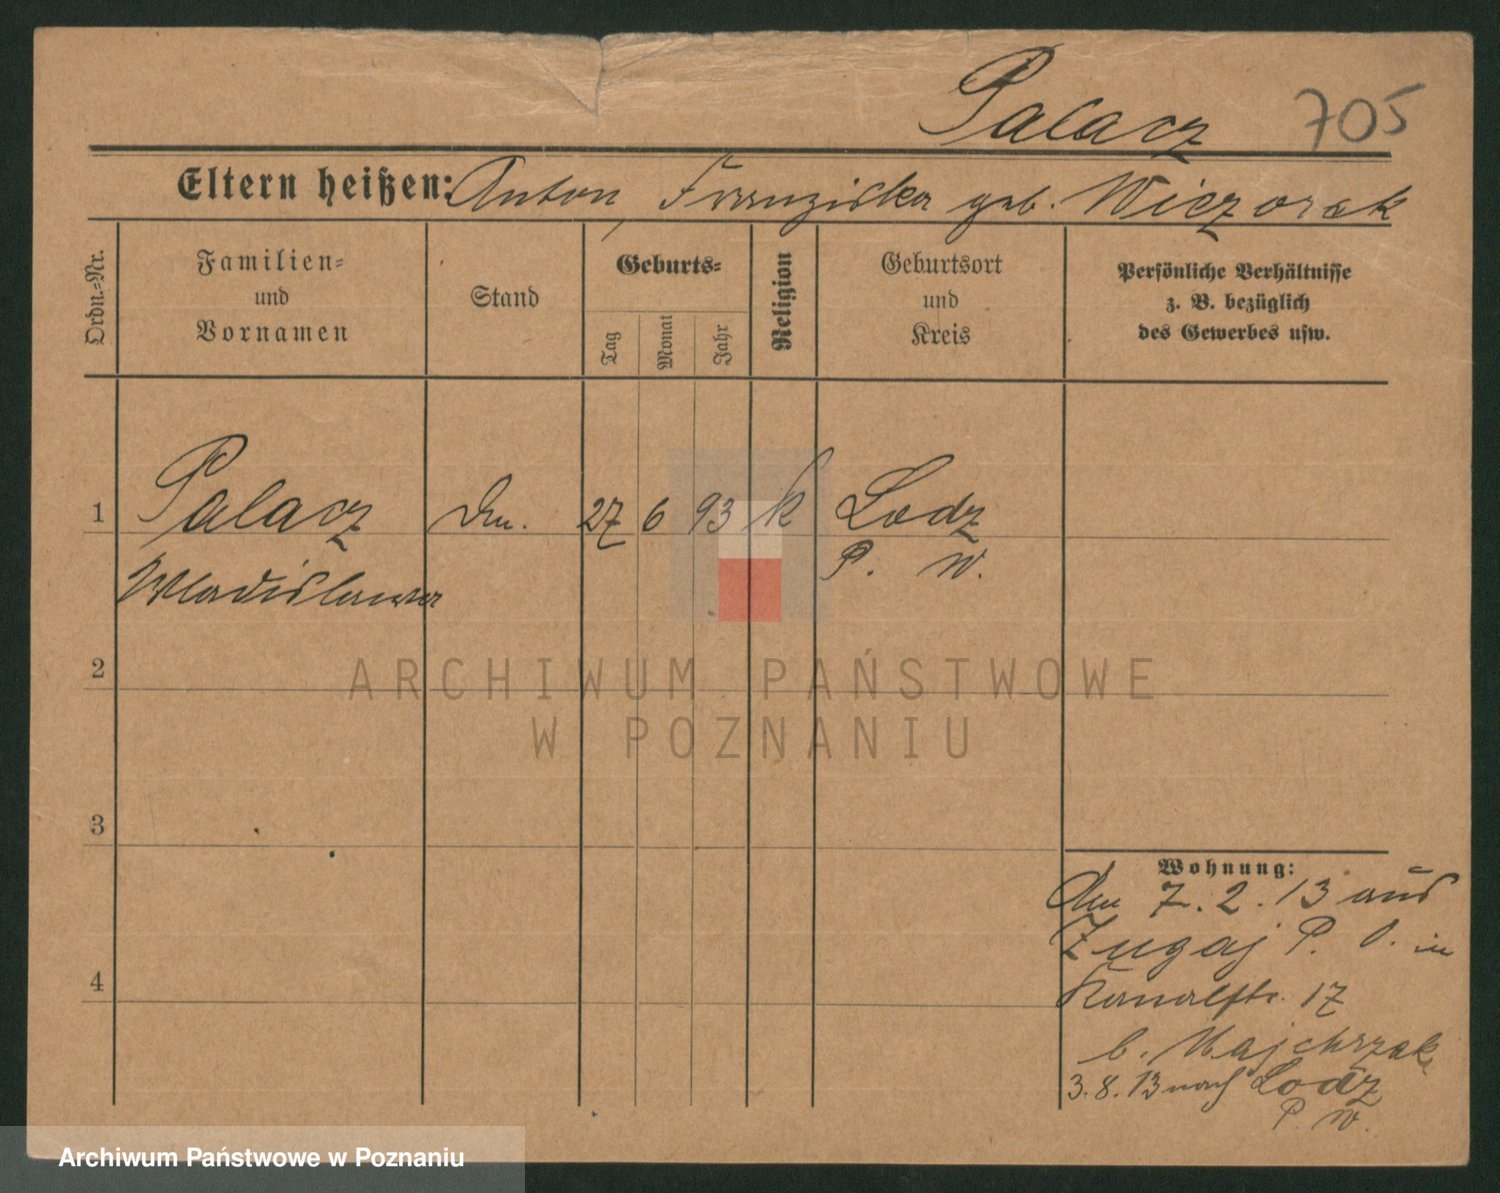 Palacz 705
Eltern heißen: Anton, Franziska geb. Wieczorek
Ordn.-Nr.
Familien-
und
Vornamen
Stand
Geburts-
Tag
Monat
Jahr
Religion
Geburtsort
und
Kreis
Persönliche Verhältnisse
z. B. bezüglich
des Gewerbes usw.
1 Palacz 27 6 93 k Lodz
Wladislawa P. W.
2
ARCHIWUM PAŃSTWOWE
W POZNANIU
3
4
Wohnung:
7. 2. 13 aus
Zugaj P. O. in
Kanalstr. 17
b. Majchrzak
3. 8. 13 nach Lodz
P. W.
Archiwum Państwowe w Poznaniu